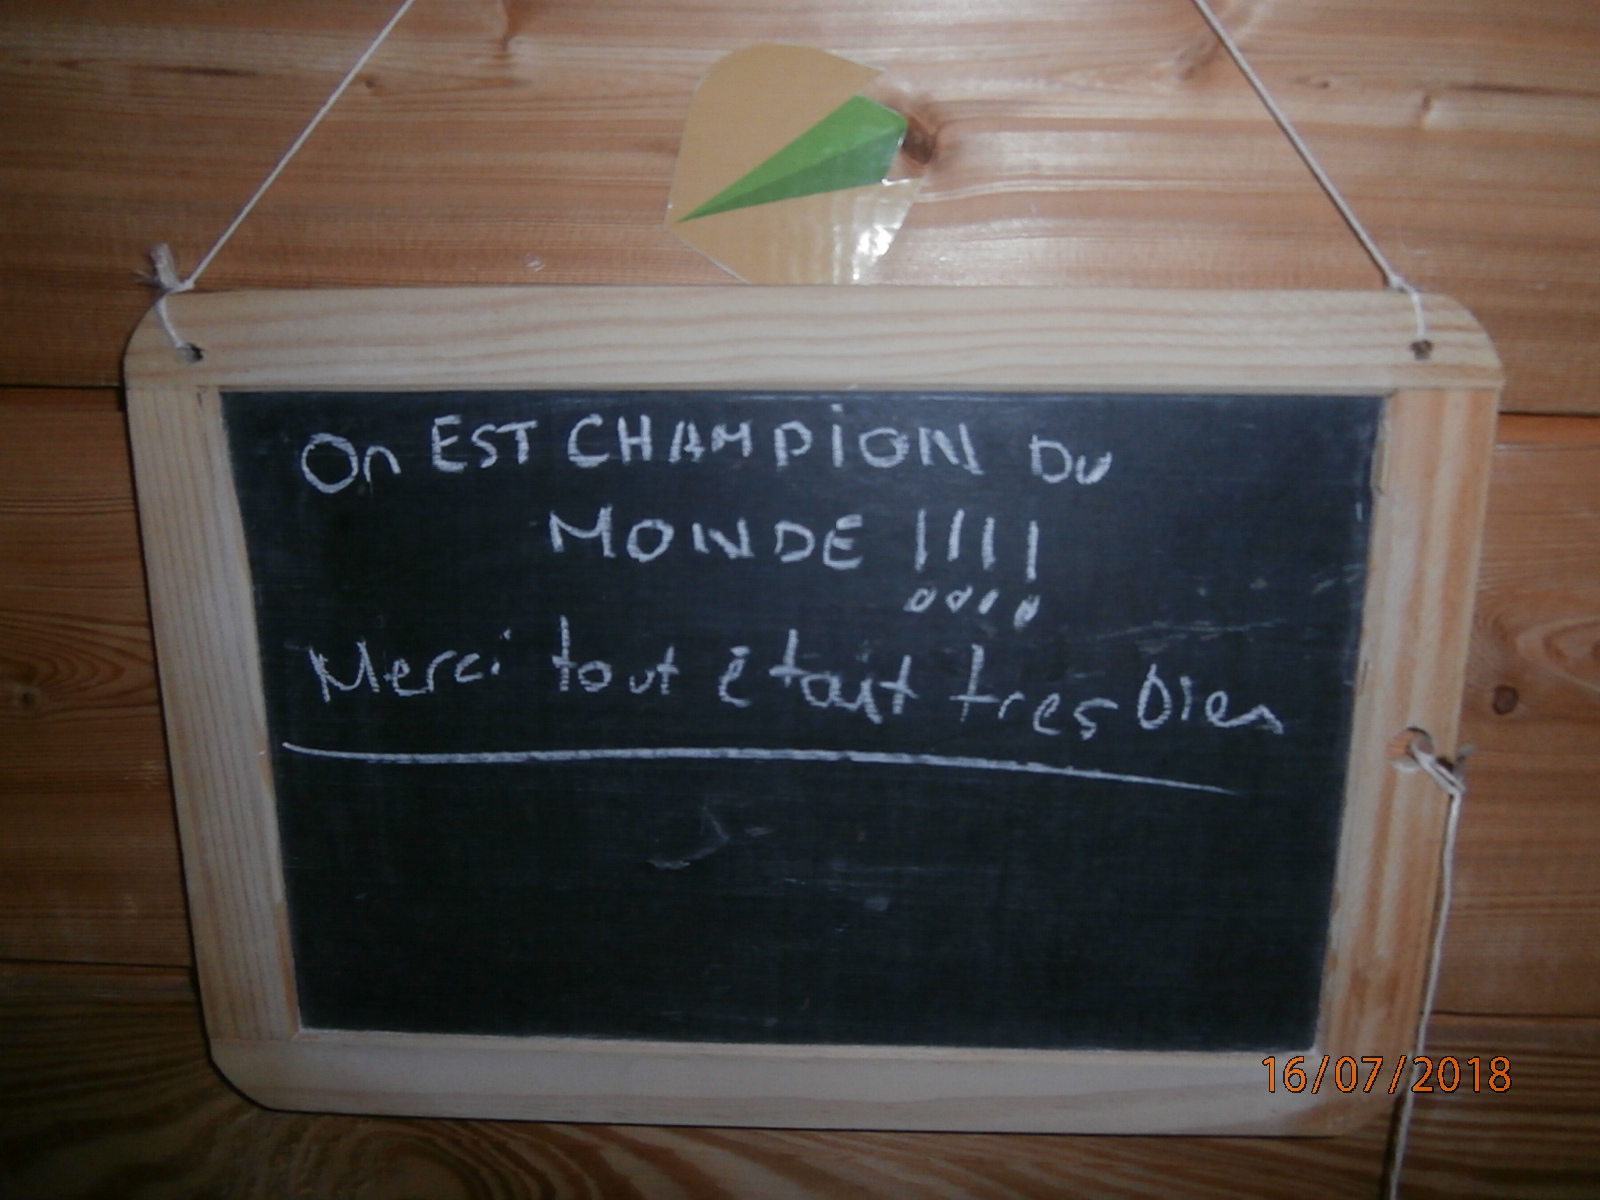 On EST CHAMPION DU
MONDE !!!!
Merci tout était tres bien
16/07/2018